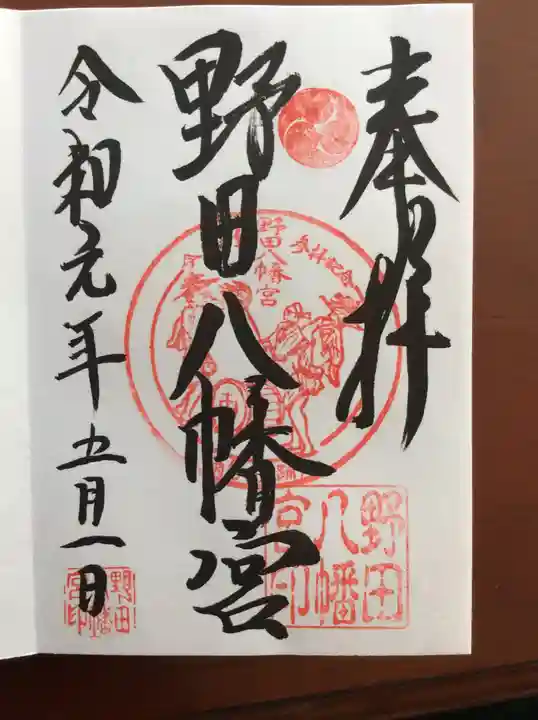 奉拝
野田八幡宮
令和元年五月一日
野田八幡宮
参拝記念
野田
八幡
宮印
野田
八幡
宮印